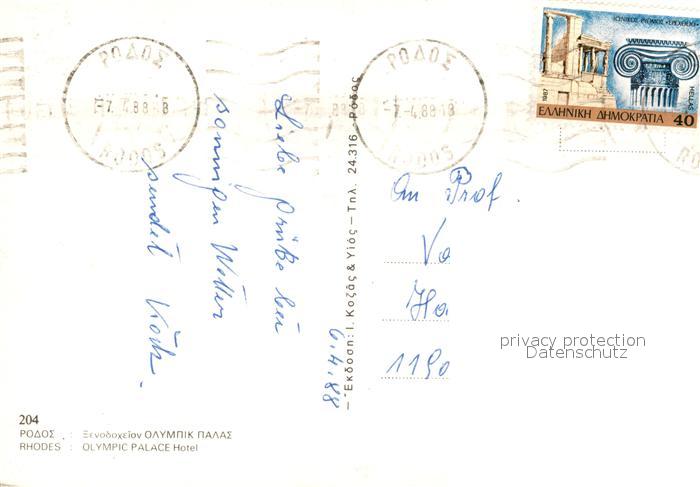 ΡΟΔΟΣ
-7.4.88-18
RODOS
ΡΟΔΟΣ
-7.-4.88-18
RODOS
ΙΩΝΙΚΟΣ ΡΥΘΜΟΣ «ΕΡΕΧΘΕΙΟ»
HELLAS
1987
ΕΛΛΗΝΙΚΗ ΔΗΜΟΚΡΑΤΙΑ 40
Liebe Grüße bei
sonnigen Wetter
sendet
6.4.88
Ἔκδοση: Ι. Κοζᾶς & Υἱός – Τηλ. 24.316 - Ρόδος
An Prof.
Va
Ha
1190
privacy protection
Datenschutz
204
ΡΟΔΟΣ : Ξενοδοχεῖον ΟΛΥΜΠΙΚ ΠΑΛΑΣ
RHODES : OLYMPIC PALACE Hotel